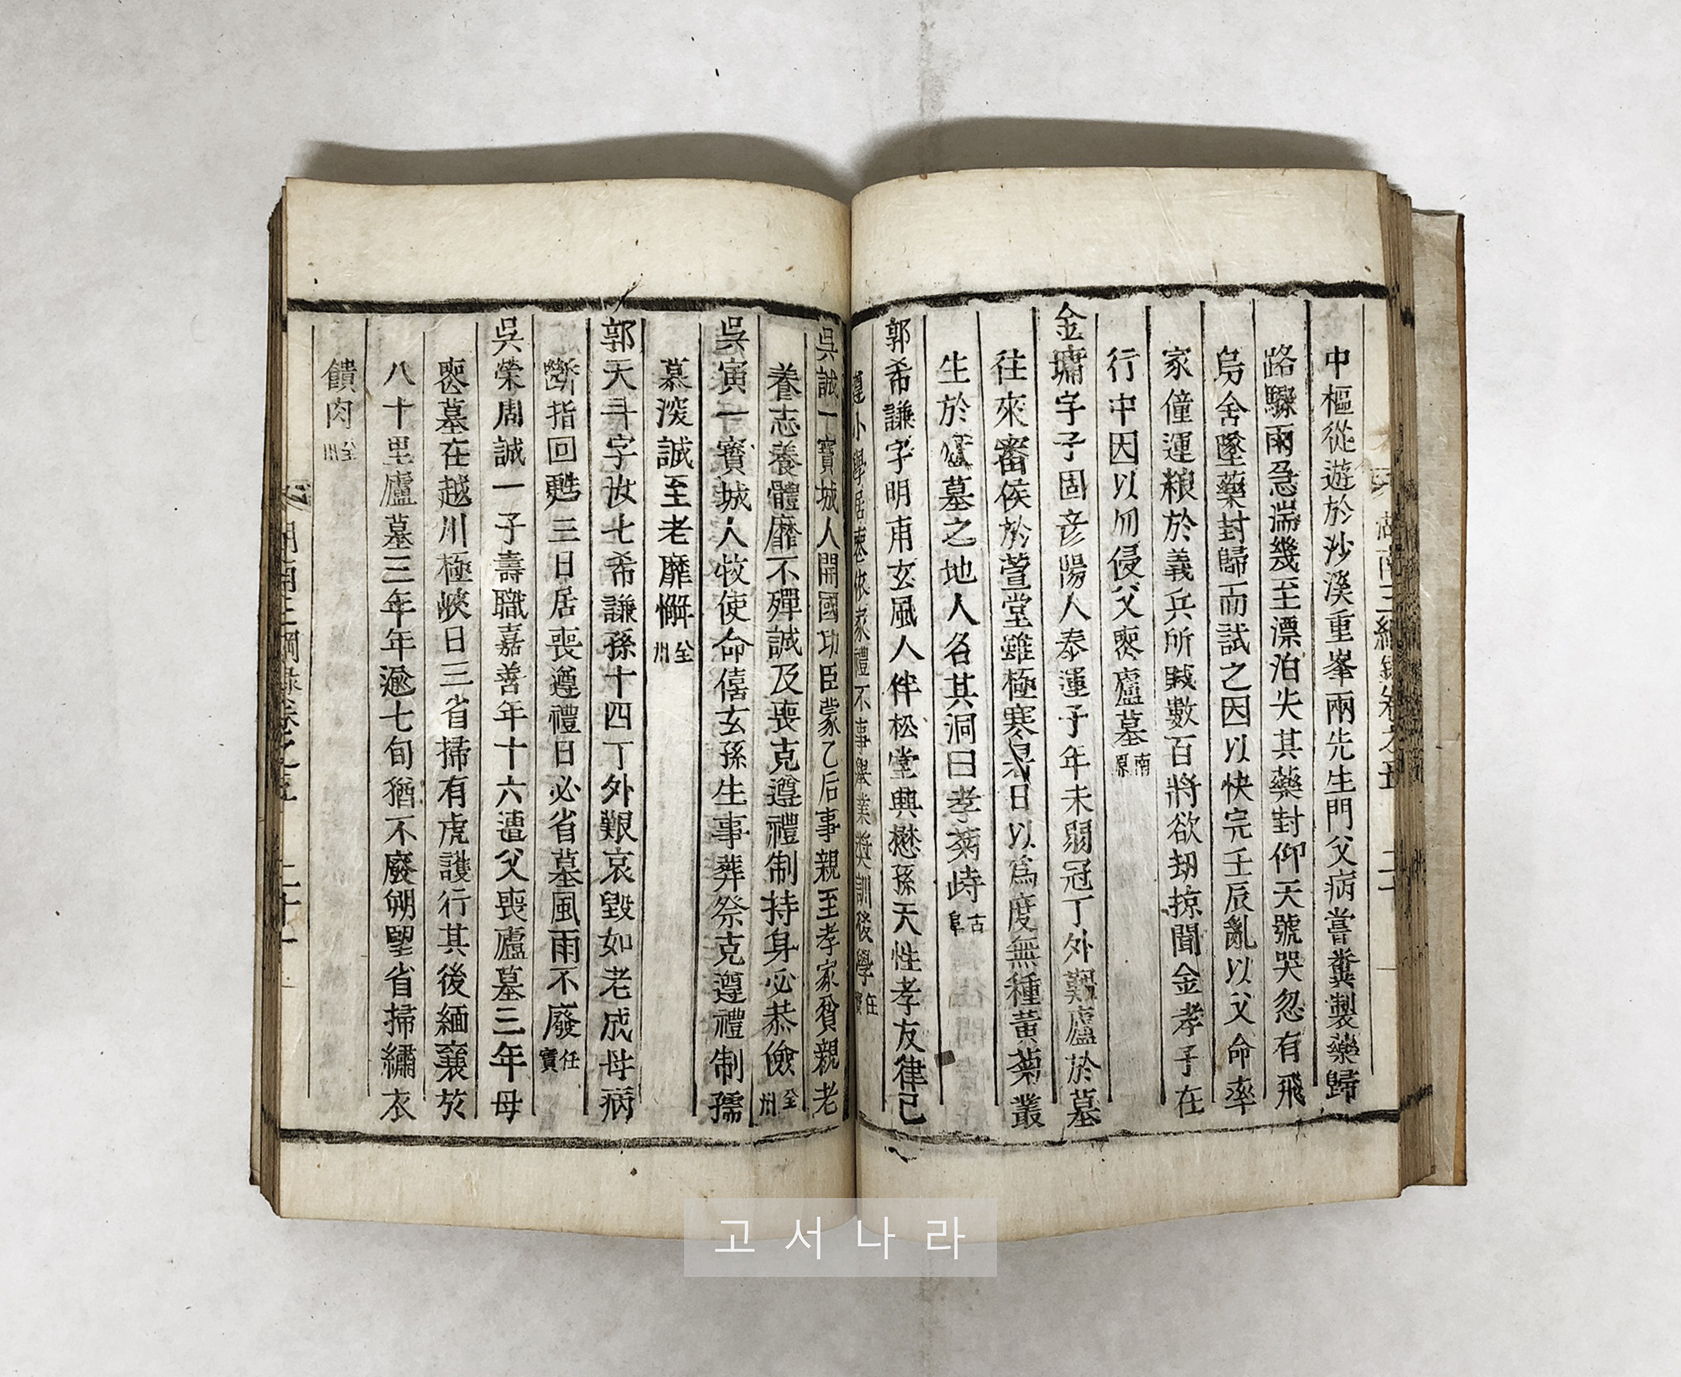 中樞從遊於沙溪重峯兩先生門父病嘗糞製藥歸
路驟雨急湍幾至漂泊失其藥封仰天號哭忽有飛
烏舍墜藥封歸而試之因以快完壬辰亂以父命率
家僮運粮於義兵所賊數百將欲刼掠聞金孝子在
行中因以勿侵父喪廬墓 南原
金墉字子固彦陽人奉運子年未弱冠丁外艱廬於墓
往來審侯於萱堂雖極寒暑日以爲度無種黃菊叢
生於墓之地人名其洞曰孝菊峙 古阜
郭希謙字明甫玄風人伴松堂興懋孫天性孝友律己
遵小學居喪依家禮不事擧業奬訓後學 任實
吳誠一寶城人開國功臣蒙乙后事親至孝家貧親老
養志養體靡不殫誠及喪克遵禮制持身必恭儉 全州
吳寅一寶城人牧使命僖玄孫生事葬祭克遵禮制孺
慕深誠至老靡懈 全州
郭天斗字汝七希謙孫十四丁外艱哀毀如老成母病
斷指回甦三日居喪遵禮日必省墓風雨不廢 任實
吳榮周誠一子壽職嘉善年十六遭父喪廬墓三年母
喪墓在越川極峽日三省掃有虎護行其後緬襄於
八十里廬墓三年年邁七旬猶不廢朔望省掃繡衣
饋肉 全州
湖南三綱錄卷之五 二十一
고서나라